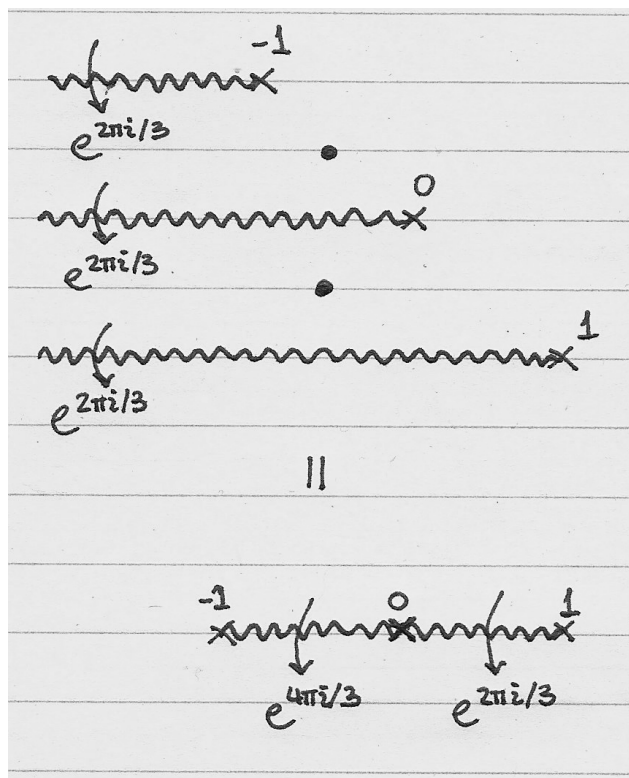 -1
e^{2πi/3}
•
0
e^{2πi/3}
•
1
e^{2πi/3}
||
-1 0 1
e^{4πi/3} e^{2πi/3}